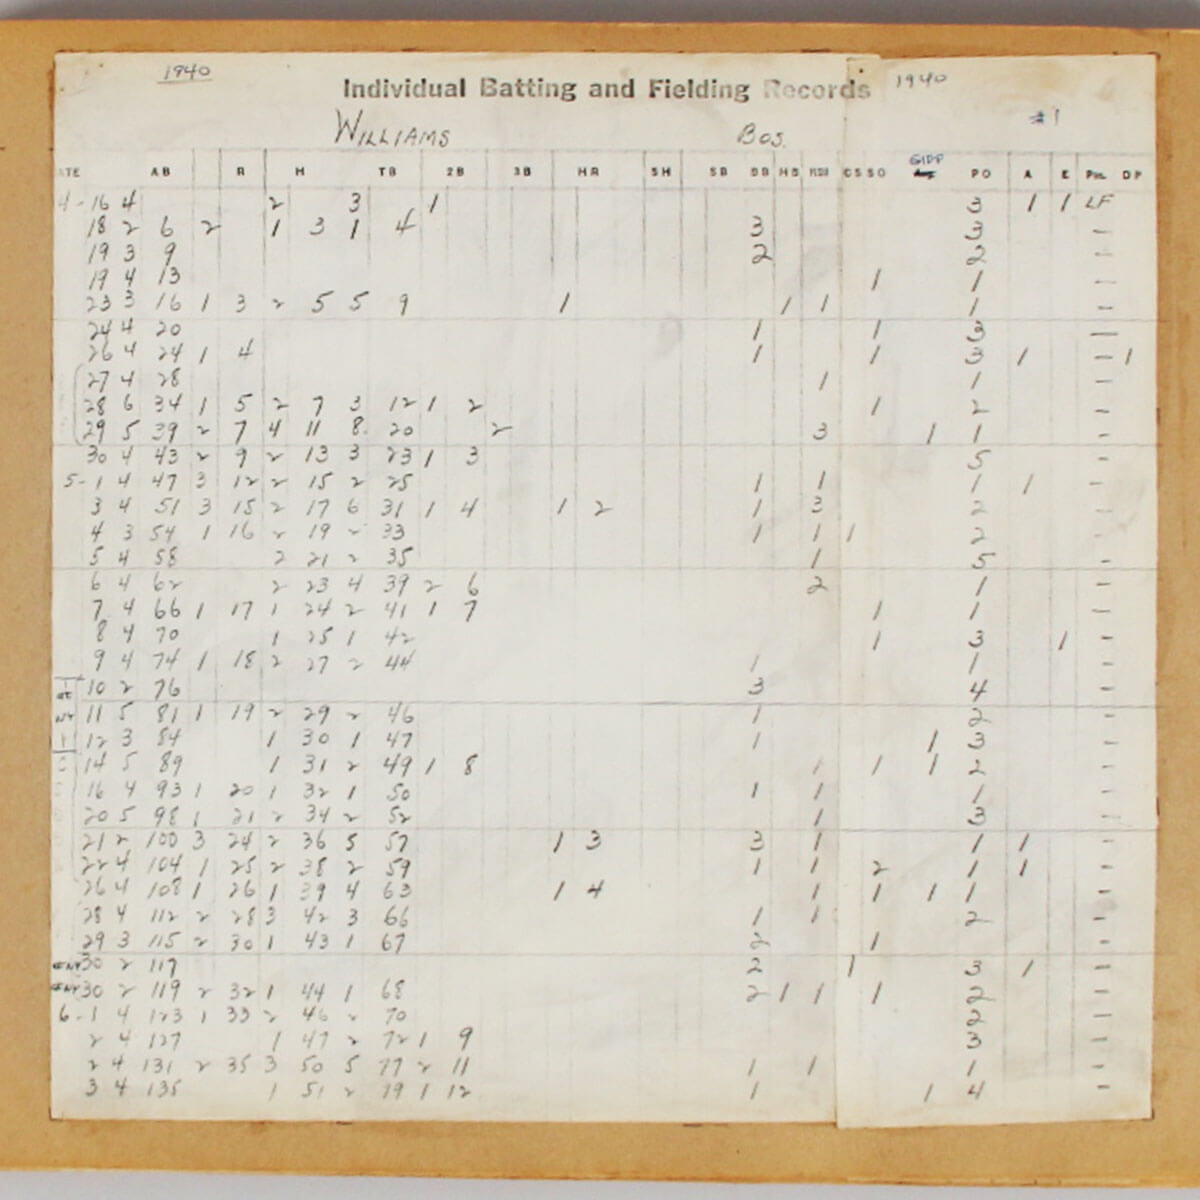 1940
1940
Individual Batting and Fielding Records
#1
WILLIAMS Bos.
GIDP
ATE AB R H TB 2B 3B HR SH SB BB HB RBI CS SO PO A E Pos. DP
4-16 4 2 3 1 3 1 1 LF
18 2 6 2 1 3 1 4 3 3 -
19 3 9 2 2 -
19 4 13 1 1 -
23 3 16 1 3 2 5 5 9 1 1 1 1 -
24 4 20 1 1 3 -
26 4 24 1 4 1 1 3 1 - 1
27 4 28 1 1 -
28 6 34 1 5 2 7 3 12 1 2 1 2 -
29 5 39 2 7 4 11 8 20 2 3 1 1 -
30 4 43 2 9 2 13 3 23 1 3 5 -
5-1 4 47 3 12 2 15 2 25 1 1 1 1 -
3 4 51 3 15 2 17 6 31 1 4 1 2 1 3 2 -
4 3 54 1 16 2 19 2 33 1 1 1 2 -
5 4 58 2 21 2 35 1 5 -
6 4 62 2 23 4 39 2 6 2 1 -
7 4 66 1 17 1 24 2 41 1 7 1 1 -
8 4 70 1 25 1 42 1 3 1 -
9 4 74 1 18 2 27 2 44 1 1 -
at 10 2 76 3 4 -
NY 11 5 81 1 19 2 29 2 46 1 2 -
12 3 84 1 30 1 47 1 1 3 -
C 14 5 89 1 31 2 49 1 8 1 1 1 2 -
16 4 93 1 20 1 32 1 50 1 1 1 -
20 5 98 1 21 2 34 2 52 1 3 -
21 2 100 3 24 2 36 5 57 1 3 3 1 1 1 -
22 4 104 1 25 2 38 2 59 1 1 2 1 1 -
26 4 108 1 26 1 39 4 63 1 4 1 1 1 1 -
28 4 112 2 28 3 42 3 66 1 1 2 -
29 3 115 2 30 1 43 1 67 2 1 -
NY 30 2 117 2 1 3 1 -
NY 30 2 119 2 32 1 44 1 68 2 1 1 1 2 -
6-1 4 123 1 33 2 46 2 70 2 -
2 4 127 1 47 2 72 1 9 3 -
2 4 131 2 35 3 50 5 77 2 11 1 1 1 -
3 4 135 1 51 2 79 1 12 1 1 4 -